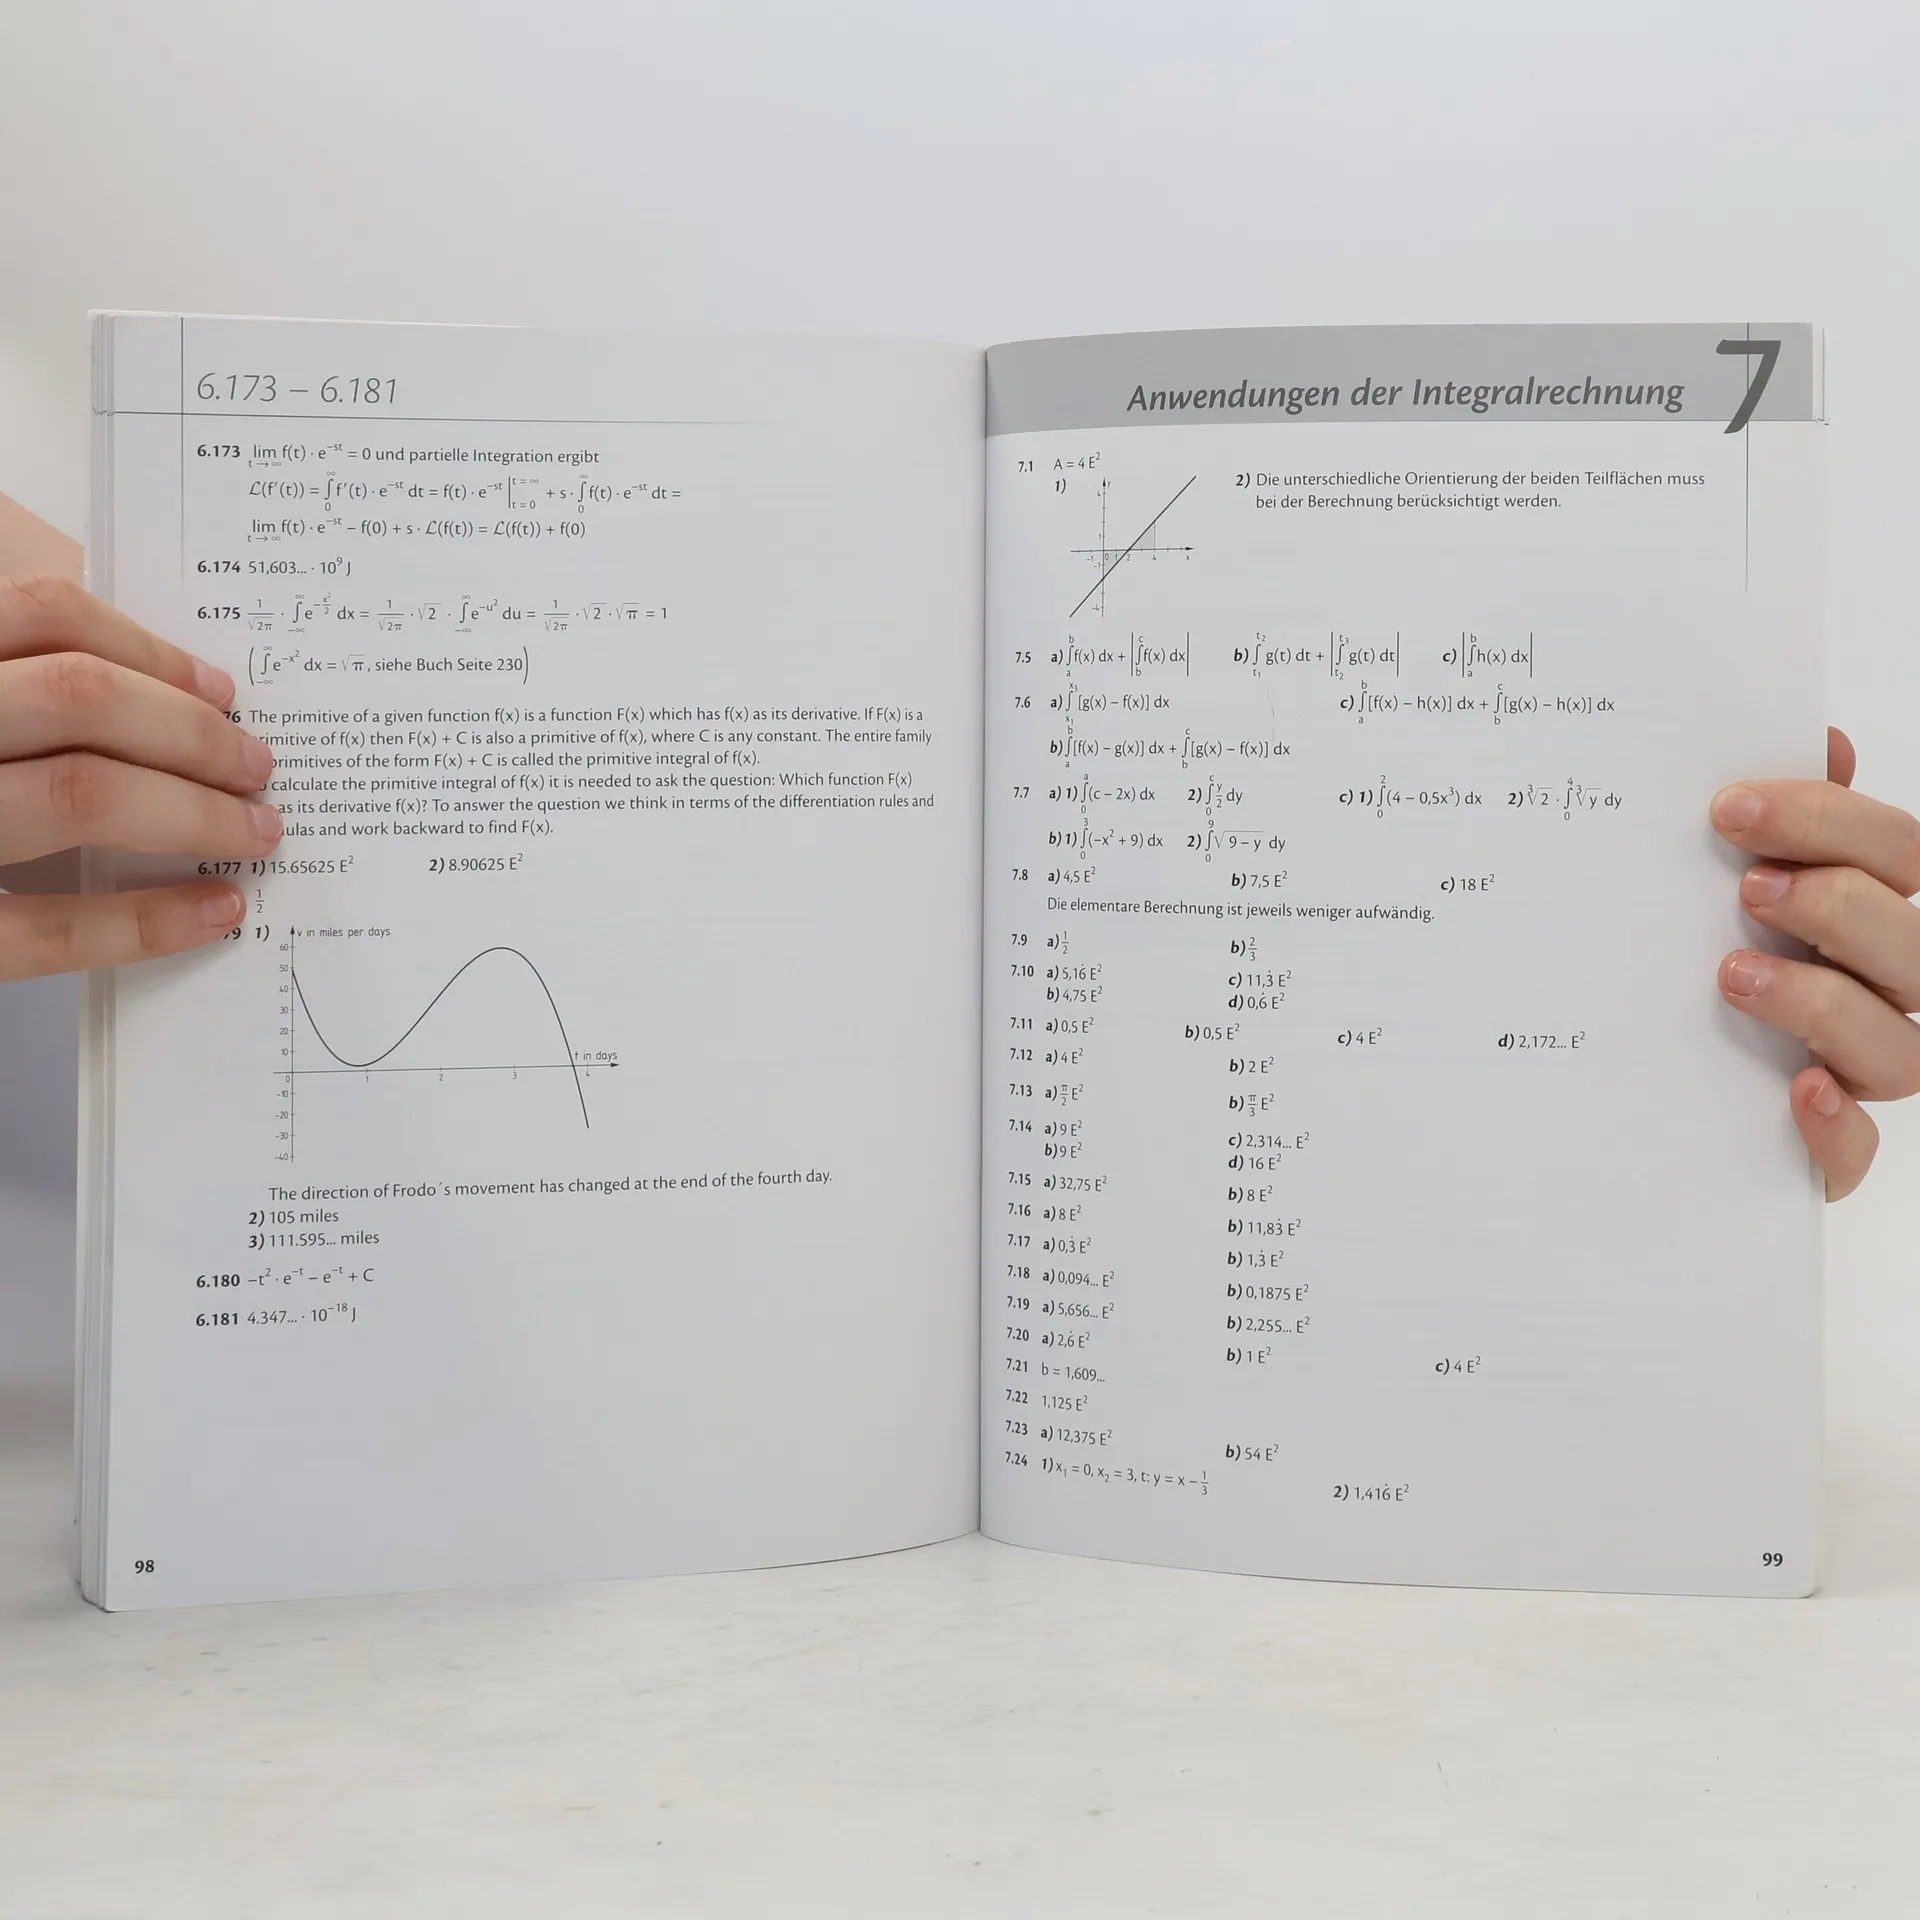 6.173 – 6.181
6.173 lim t → ∞ f(t) · e^(−st) = 0 und partielle Integration ergibt
ℒ(f′(t)) = ∫₀^∞ f′(t) · e^(−st) dt = f(t) · e^(−st) |_(t = 0)^(t = ∞) + s · ∫₀^∞ f(t) · e^(−st) dt =
lim t → ∞ f(t) · e^(−st) − f(0) + s · ℒ(f(t)) = ℒ(f(t)) + f(0)
6.174 51,603... · 10⁹ J
6.175 1/√2π · ∫_(−∞)^∞ e^(−x²/2) dx = 1/√2π · √2 · ∫_(−∞)^∞ e^(−u²) du = 1/√2π · √2 · √π = 1
(∫_(−∞)^∞ e^(−x²) dx = √π, siehe Buch Seite 230)
76 The primitive of a given function f(x) is a function F(x) which has f(x) as its derivative. If F(x) is a
rimitive of f(x) then F(x) + C is also a primitive of f(x), where C is any constant. The entire family
primitives of the form F(x) + C is called the primitive integral of f(x).
calculate the primitive integral of f(x) it is needed to ask the question: Which function F(x)
as its derivative f(x)? To answer the question we think in terms of the differentiation rules and
ulas and work backward to find F(x).
6.177 1) 15.65625 E² 2) 8.90625 E²
1/2
79 1)
v in miles per days
60
50
40
30
20
10
t in days
0 1 2 3 4
−10
−20
−30
−40
The direction of Frodo´s movement has changed at the end of the fourth day.
2) 105 miles
3) 111.595... miles
6.180 −t² · e^(−t) − e^(−t) + C
6.181 4.347... · 10^(−18) J
98
Anwendungen der Integralrechnung
7
7.1 A = 4 E²
1)
y
4
1
−1 0 1 2 4 x
−1
−4
2) Die unterschiedliche Orientierung der beiden Teilflächen muss
bei der Berechnung berücksichtigt werden.
7.5 a) ∫_a^b f(x) dx + |∫_b^c f(x) dx| b) ∫_(t₁)^(t₂) g(t) dt + |∫_(t₂)^(t₃) g(t) dt| c) |∫_a^b h(x) dx|
7.6 a) ∫_(x₁)^(x₃) [g(x) − f(x)] dx c) ∫_a^b [f(x) − h(x)] dx + ∫_b^c [g(x) − h(x)] dx
b) ∫_a^b [f(x) − g(x)] dx + ∫_b^c [g(x) − f(x)] dx
7.7 a) 1) ∫₀^a (c − 2x) dx 2) ∫₀^c y/2 dy c) 1) ∫₀² (4 − 0,5x³) dx 2) ∛2 · ∫₀⁴ ∛y dy
b) 1) ∫₀³ (−x² + 9) dx 2) ∫₀⁹ √(9 − y) dy
7.8 a) 4,5 E² b) 7,5 E² c) 18 E²
Die elementare Berechnung ist jeweils weniger aufwändig.
7.9 a) 1/2 b) 2/3
7.10 a) 5,16̇ E² c) 11,3̇ E²
b) 4,75 E² d) 0,6̇ E²
7.11 a) 0,5 E² b) 0,5 E² c) 4 E² d) 2,172... E²
7.12 a) 4 E² b) 2 E²
7.13 a) π/2 E² b) π/3 E²
7.14 a) 9 E² c) 2,314... E²
b) 9 E² d) 16 E²
7.15 a) 32,75 E² b) 8 E²
7.16 a) 8 E² b) 11,83̇ E²
7.17 a) 0,3̇ E² b) 1,3̇ E²
7.18 a) 0,094... E² b) 0,1875 E²
7.19 a) 5,656... E² b) 2,255... E²
7.20 a) 2,6̇ E² b) 1 E² c) 4 E²
7.21 b = 1,609...
7.22 1,125 E²
7.23 a) 12,375 E² b) 54 E²
7.24 1) x₁ = 0, x₂ = 3, t: y = x − 1/3 2) 1,416̇ E²
99